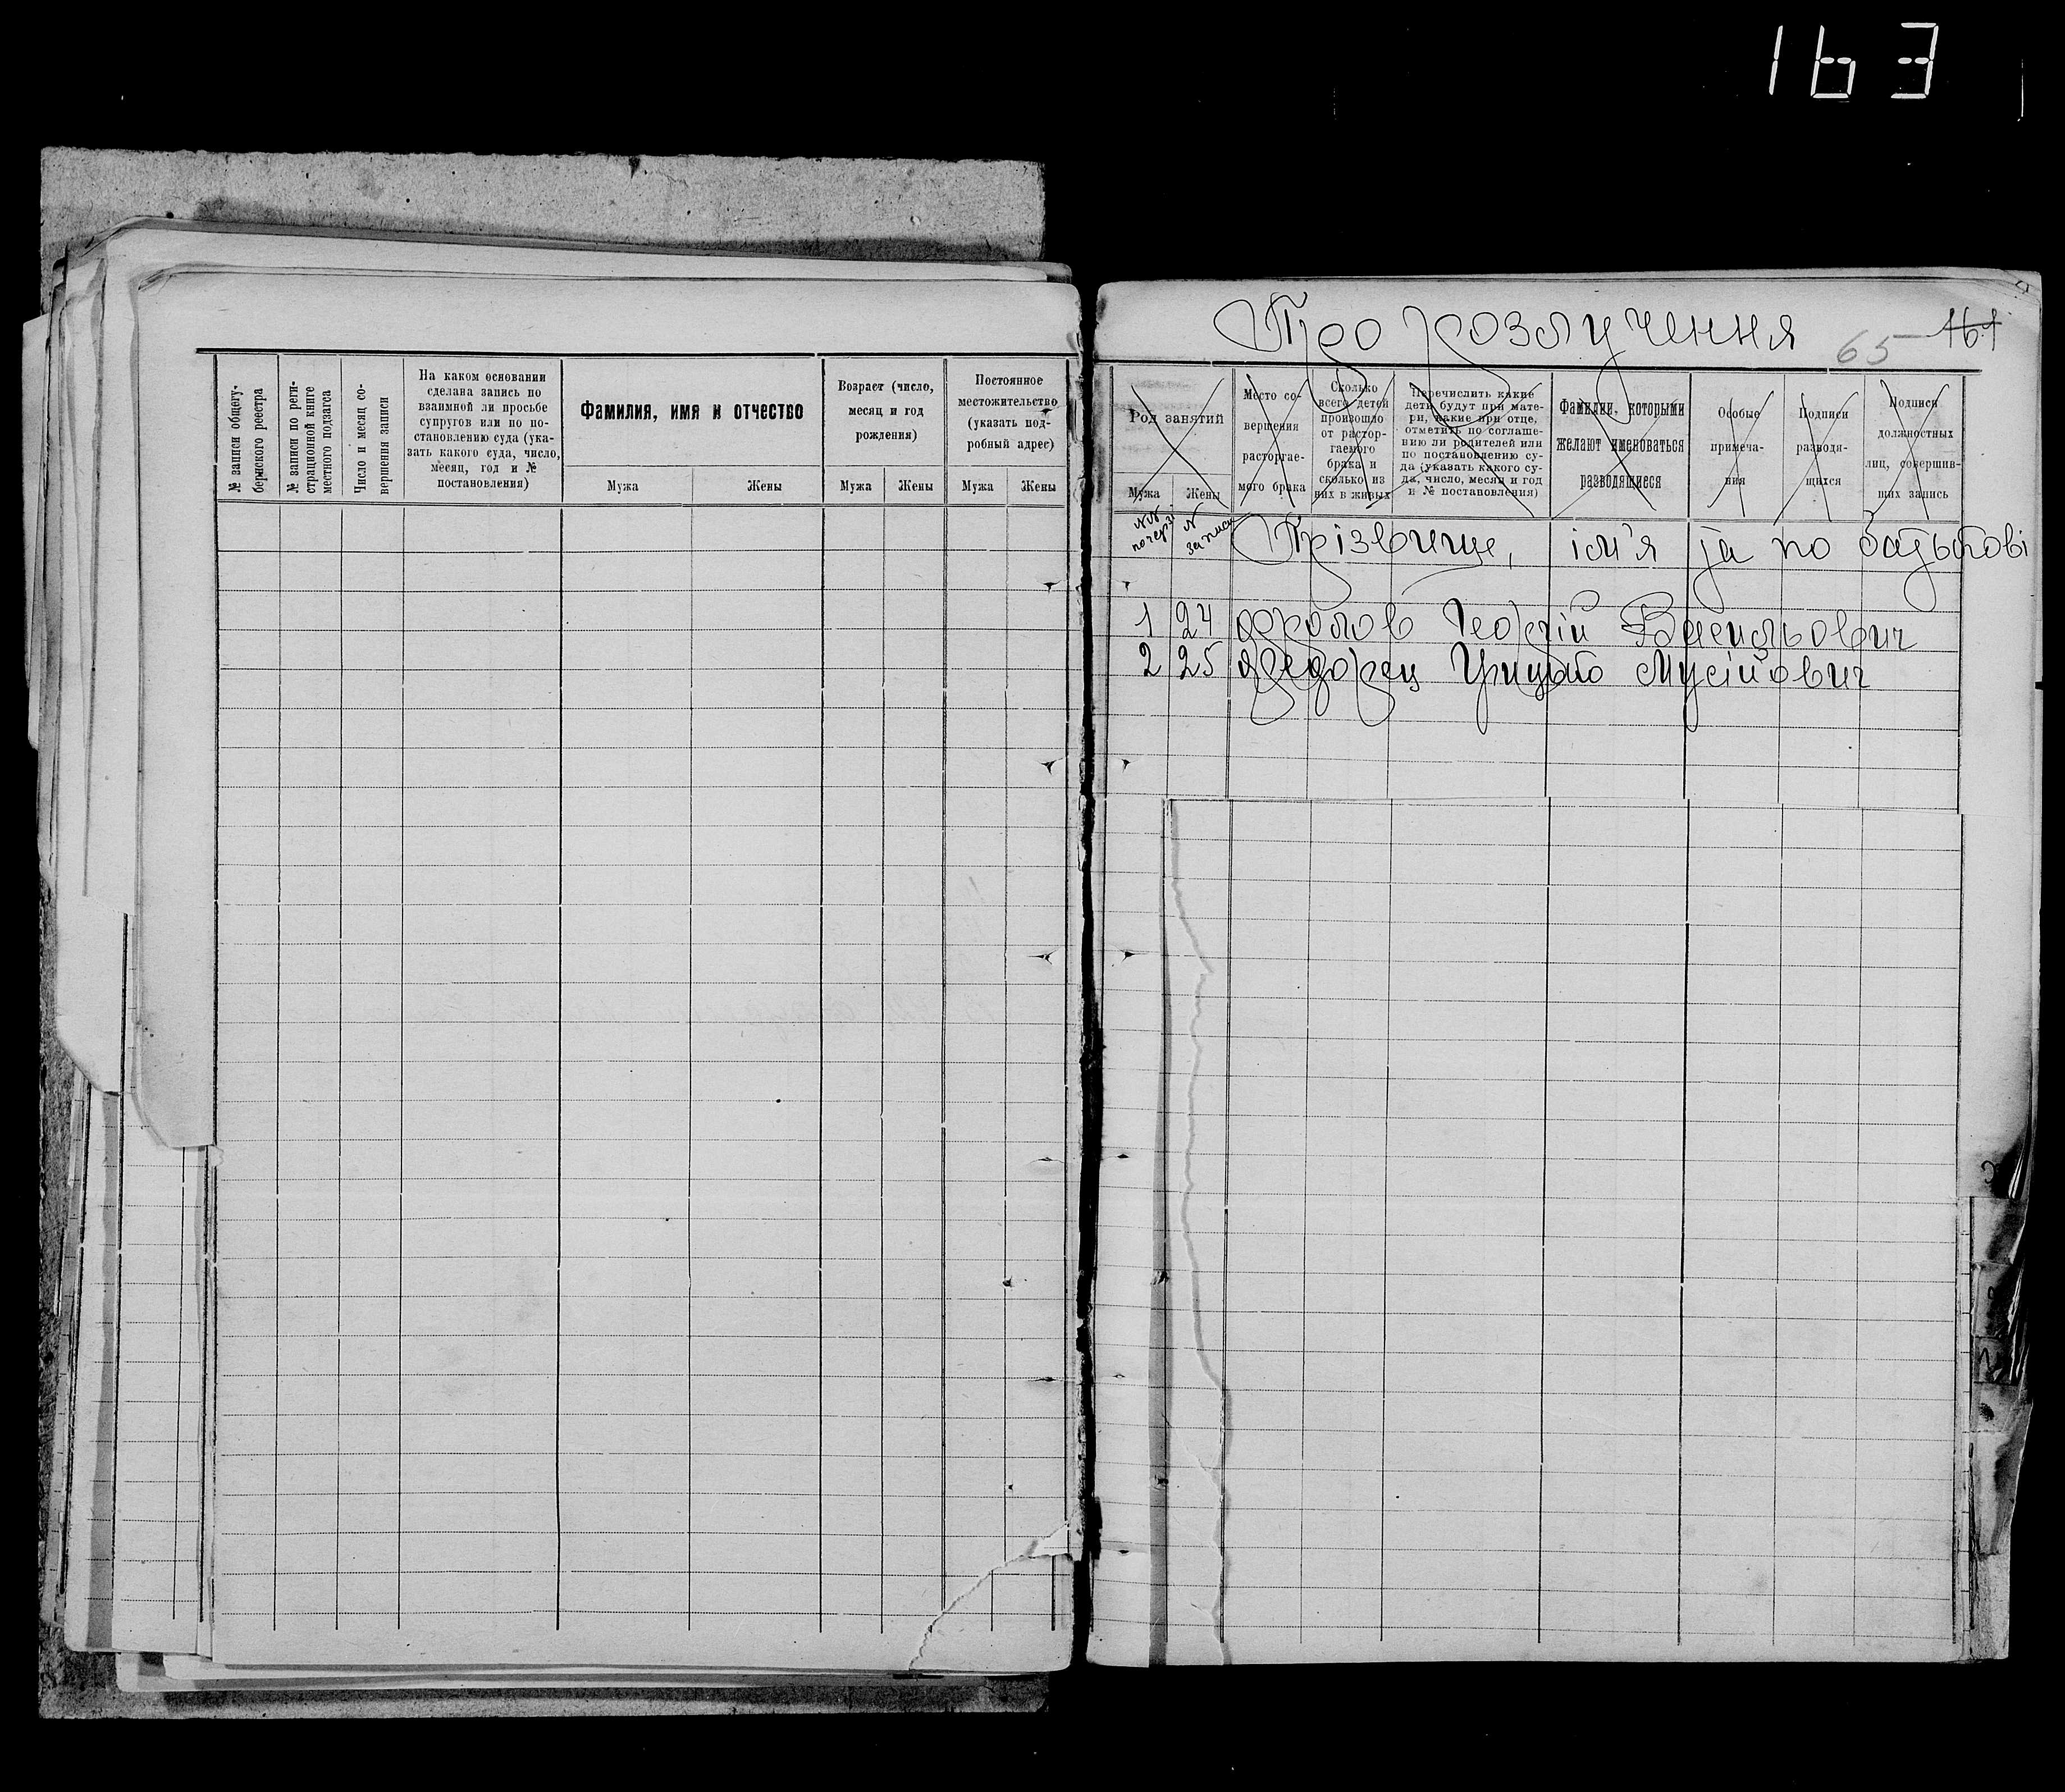 163
№ записи общегу-
бернского реестра
№ записи по реги-
страционной книге
местного подзагса
Число и месяц со-
вершения записи
На каком основании
сделана запись по
взаимной ли просьбе
супругов или по по-
становлению суда (ука-
зать какого суда, число,
месяц, год и №
постановления)
Фамилия, имя и отчество
Мужа
Жены
Возраст (число,
месяц и год
рождения)
Мужа
Жены
Постоянное
местожительство
(указать под-
робный адрес)
Мужа
Жены
Про розлучення
65
161
Род занятий
Мужа
Жены
Место со-
вершения
расторгае-
мого брака
Сколько
всего детей
произошло
от растор-
гаемого
брака и
сколько из
них в живых
Перечислить какие
дети будут при мате-
ри, какие при отце,
отметить по соглаше-
нию ли родителей или
по постановлению су-
да (указать какого су-
да, число, месяц и год
и № постановления)
Фамилии, которыми
желают именоваться
разводящиеся
Особые
примеча-
ния
Подписи
разводя-
щихся
Подписи
должностных
лиц, совершив-
ших запись
NN
по черзі
N
запису
Прізвище, ім'я та по батькові
1 24 Фролов Георгій Васильович
2 25 Федорец Грицько Мусійович